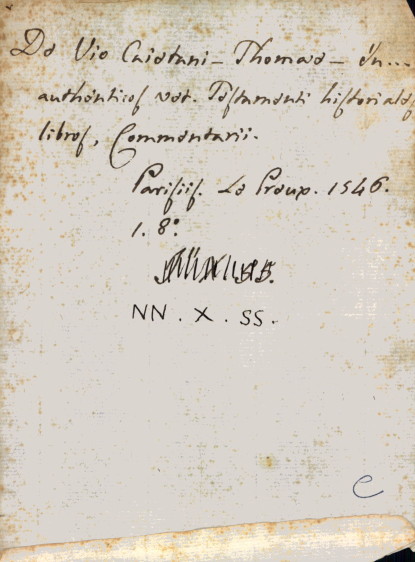 De Vio Caietani - Thomae - in...
authenticos vet. Testamenti historiales
libros, Commentarii.
Parisiis. Le Preux. 1546.
1. 8º.
NN. X. SS.
e